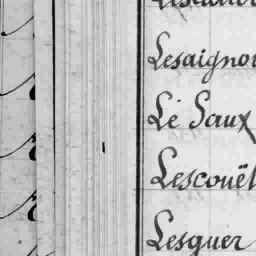 Lesaignou
Le Saux
Lescouët
Lesguer